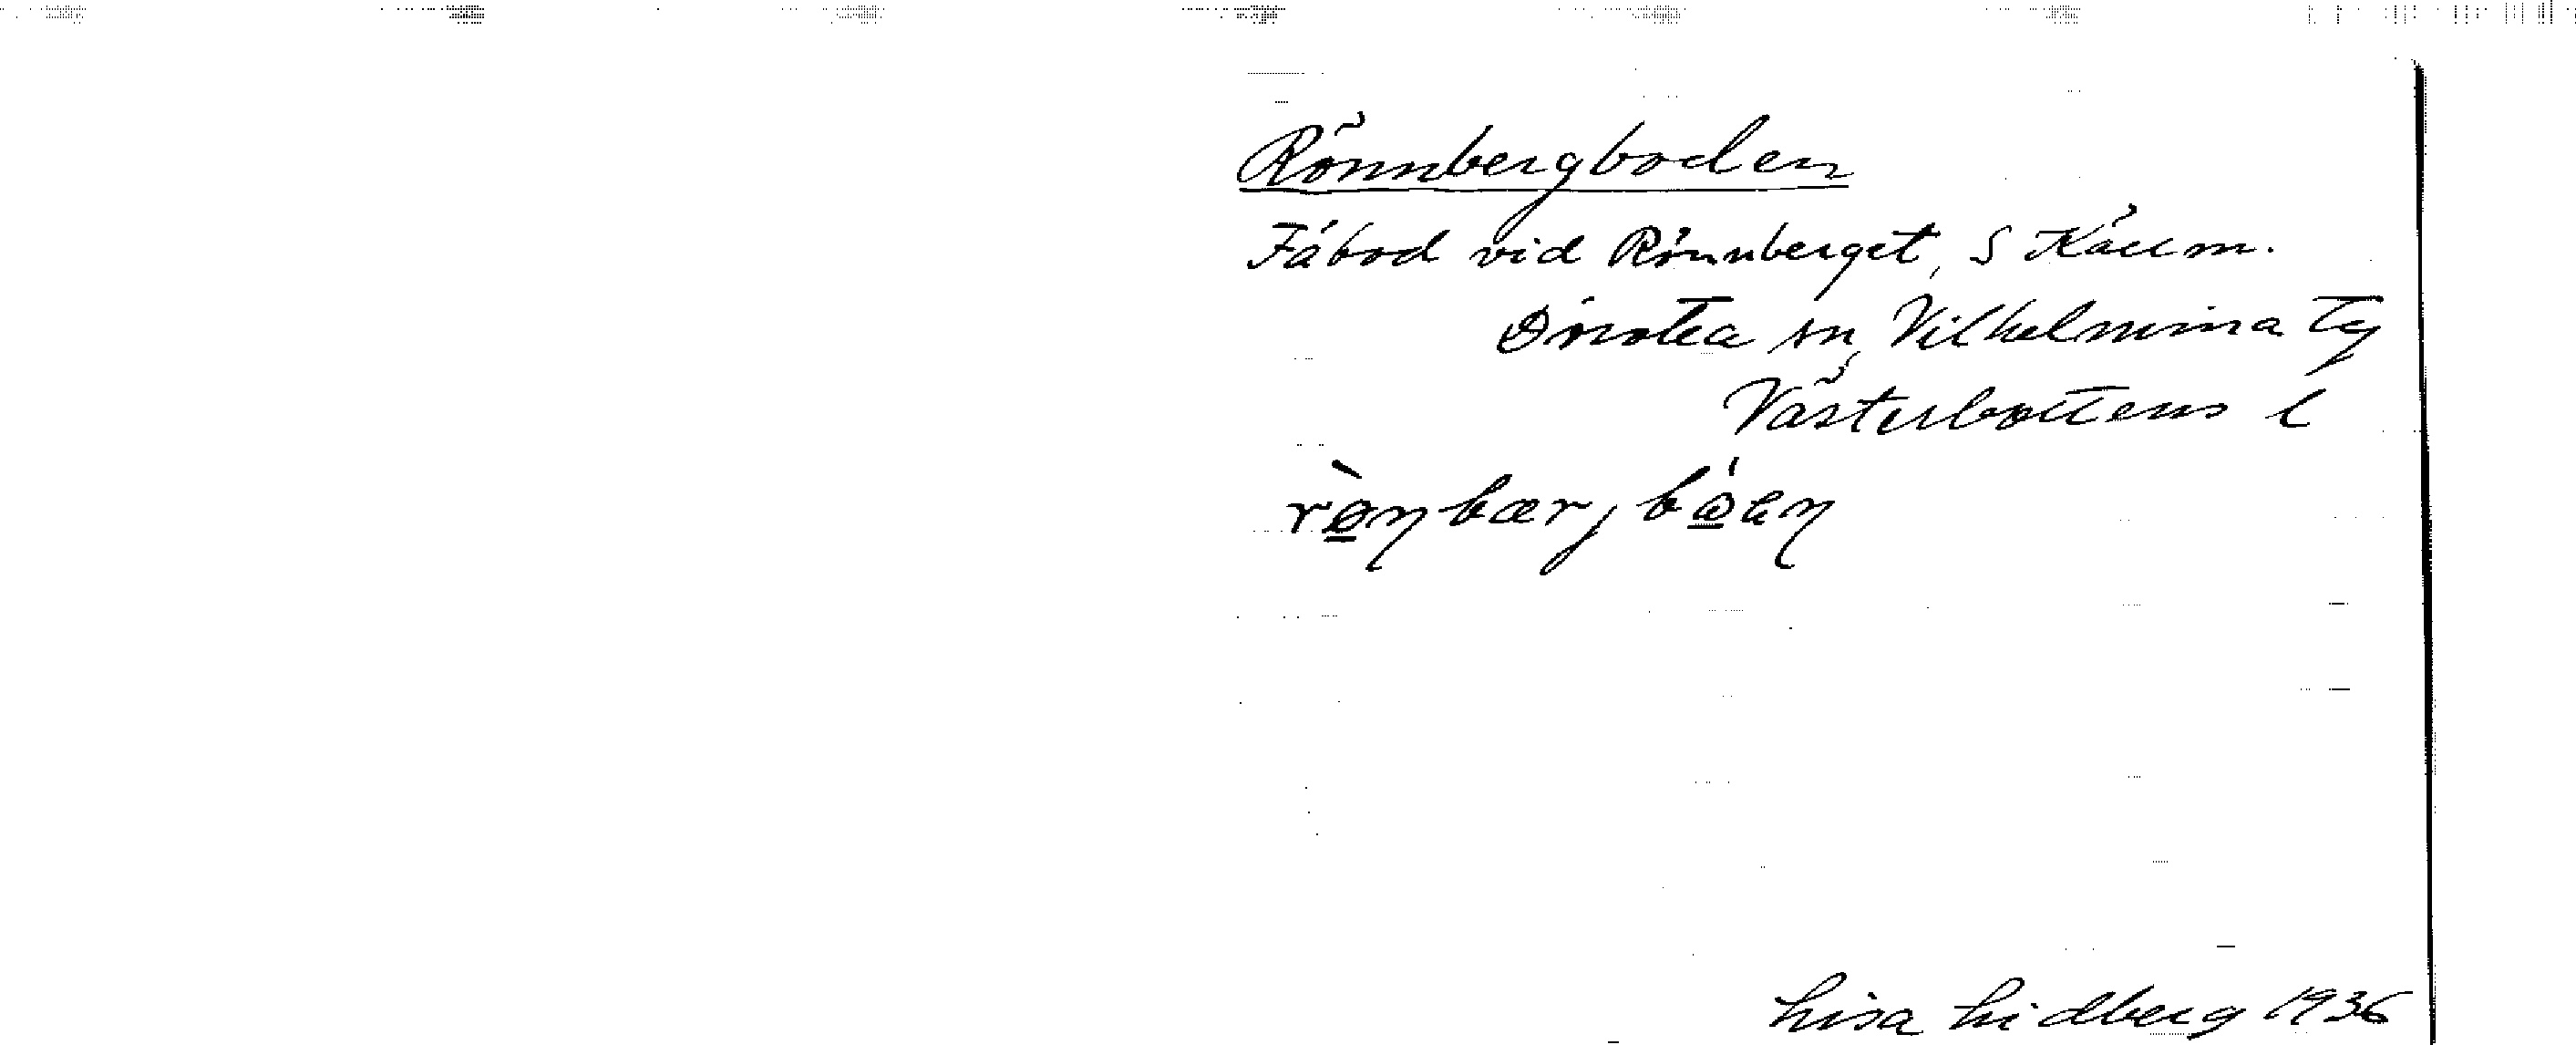 Rönnbergboden
Fäbod vid Rönnberget, S
Dorotea sn, Vilhelmina Tg
Västerbottens l
Lisa Lidberg 1936